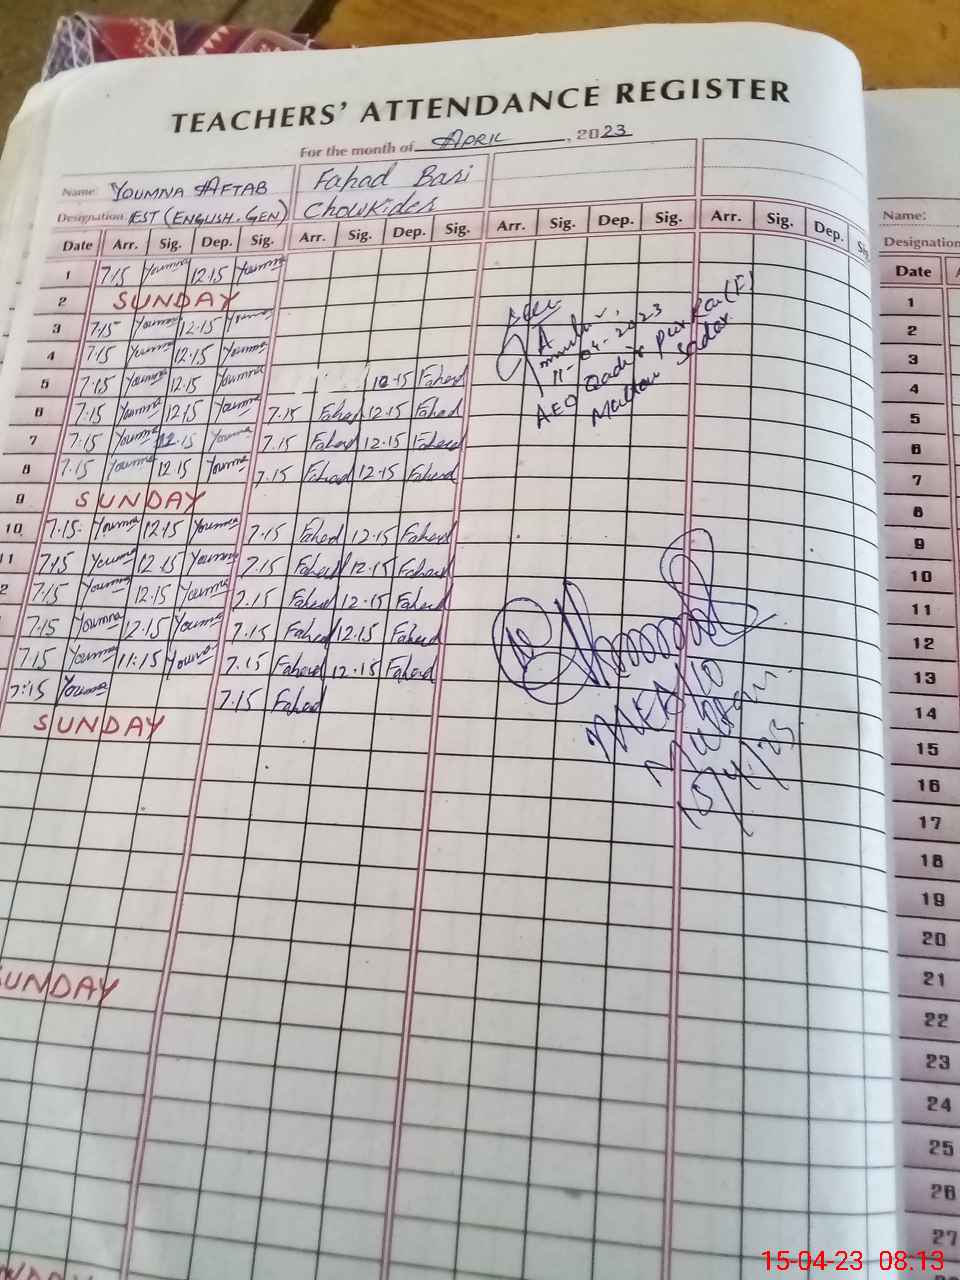 TEACHERS' ATTENDANCE REGISTER
For the month of APRIL, 2023
Name: YOUMNA AFTAB Fahad Basi
Designation EST (ENGLISH. GEN) Chowkider
Date Arr. Sig. Dep. Sig. Arr. Sig. Dep. Sig. Arr. Sig. Dep. Sig. Arr. Sig. Dep. Sig.
1 7.15 Youmna 12.15 Youmna
2 SUNDAY
3 7.15 Youmna 12.15 Youmna
4 7.15 Youmna 12.15 Youmna
5 7.15 Youmna 12.15 Youmna 12.15 Fahad
6 7.15 Youmna 12.15 Youmna 7.15 Fahad 12.15 Fahad
7 7.15 Youmna 12.15 Youmna 7.15 Fahad 12.15 Fahad
8 7.15 Youmna 12.15 Youmna 7.15 Fahad 12.15 Fahad
9 SUNDAY
10 7.15 Youmna 12.15 Youmna 7.15 Fahad 12.15 Fahad
11 7.15 Youmna 12.15 Youmna 7.15 Fahad 12.15 Fahad
2 7.15 Youmna 12.15 Youmna 7.15 Fahad 12.15 Fahad
7.15 Youmna 12.15 Youmna 7.15 Fahad 12.15 Fahad
7.15 Youmna 11:15 Youmna 7.15 Fahad 12.15 Fahad
7:15 Youmna 7.15 Fahad
SUNDAY
SUNDAY
11-04-2023
AEO Qadir Pur Ran (E)
Multan Sadar
MEA 10
Multan
15/4/23
Name:
Designation
Date
1
2
3
4
5
6
7
8
9
10
11
12
13
14
15
16
17
18
19
20
21
22
23
24
25
26
27
15-04-23 08:13